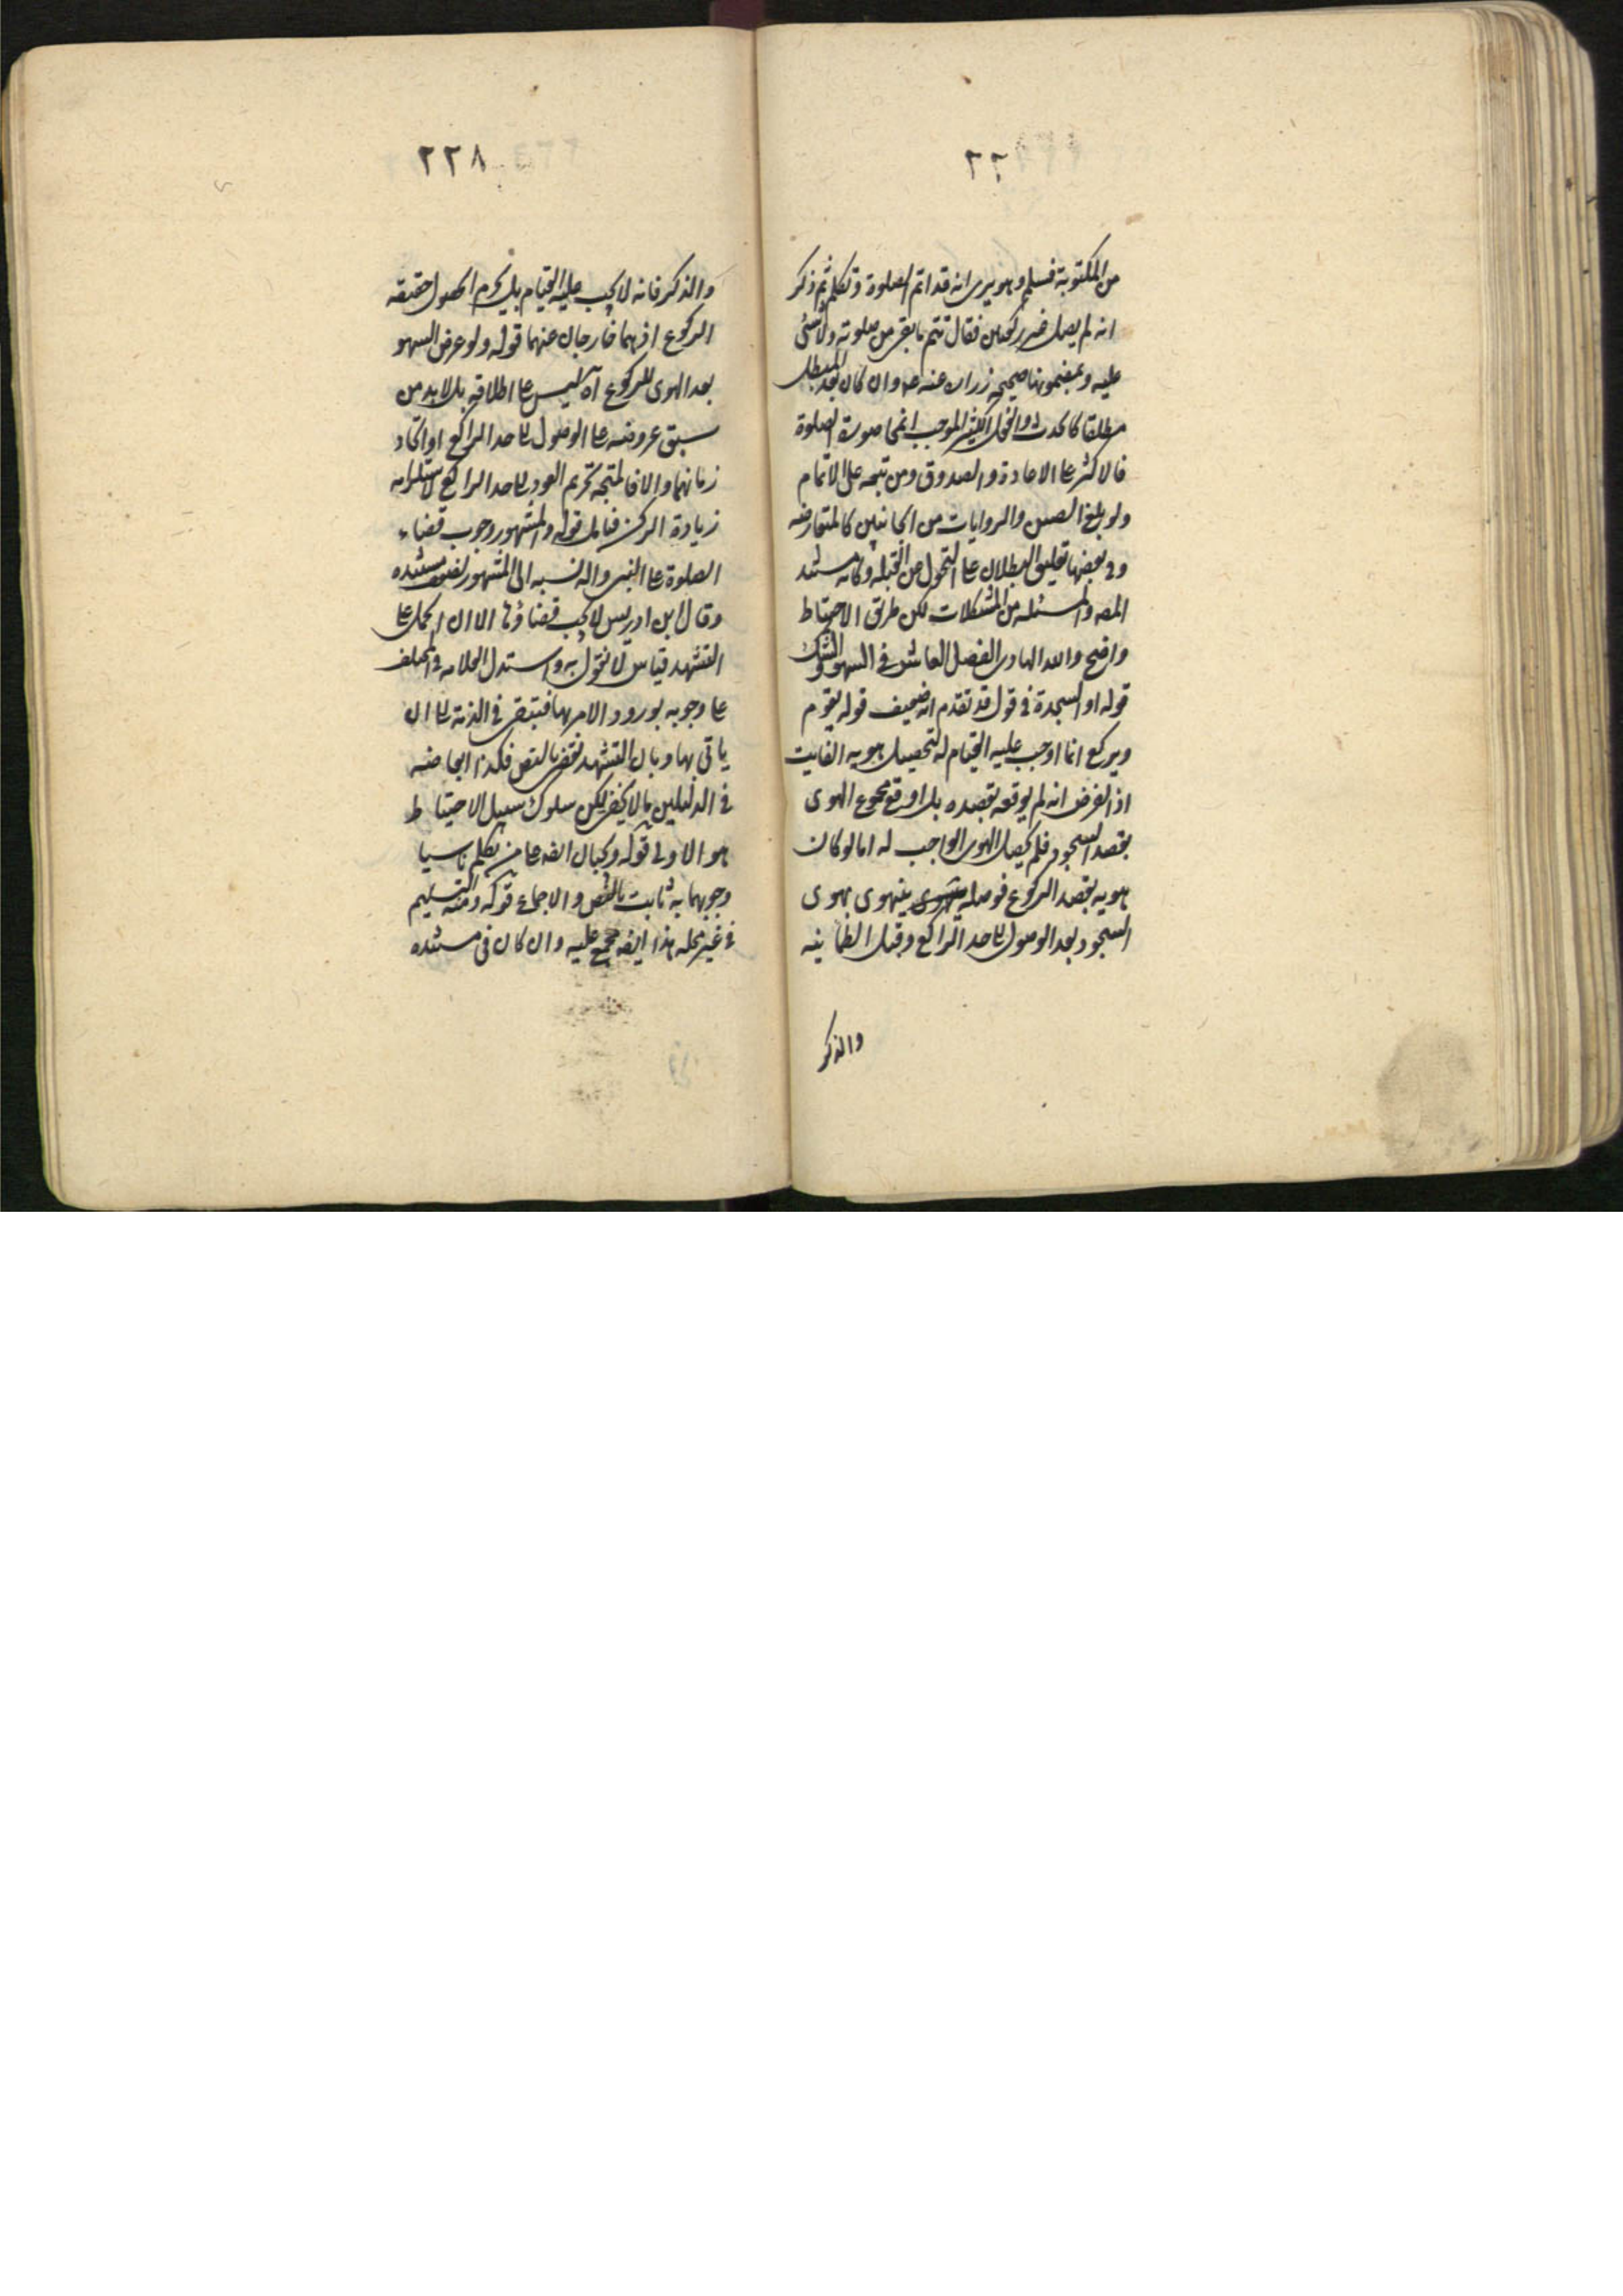 ٢٢
من المكتوبة فسلم وهو يرى انه قد اتم الصلوة وتكلم ثم ذكر
انه لم يصل غير ركعتين فقال تتم ما بقى من صلوته ولا شئ
عليه وبمضمونها صحيحة زرارة عنه ع وان كان بعد المبطل
مطلقا كالحدث والفعل الكثير الموجب انمحا صورة الصلوة
فالاكثر على الاعادة والصدوق ومن تبعه على الاتمام
ولو بلغ الصين والروايات من الجانبين كالمتعارضه
وفى بعضها تعليق البطلان على التحول من القبلة وكانه مستند
المصه والمسئله من المشكلات لكن طريق الاحتياط
واضح والله الهادى الفصل العاشر فى السهو والشك
قوله او السجدة فى قول قد تقدم انه ضعيف قوله يقوم
ويركع انما اوجب عليه القيام له لتحصيل هويه الفايت
اذ الفرض انه لم يوقعه بقصده بل اوقع مجموع الهوى
بقصد السجود فلم يحصل الهوى الواجب له اما لو كان
هويه بقصد الركوع فوصله بهوى
السجود بعد الوصول لحد الراكع وقبل الطمانينه
والذكر
٢٢٨
والذكر فانه لا يجب عليه القيام بل يحرم لحصول حقيقه
الركوع اذ هما خارجان عنهما قوله ولو عرض السهو
بعد الهوى للركوع آه ليس على اطلاقه بل لا بد من
سبق عروضه على الوصول لحد الراكع او اتحاد
زمانهما والا فالمتجه تحريم العود لحد الراكع لاستلزامه
زيادة الركن فتامل قوله والمشهور وجوب قضاء
الصلوة على النبى واله نسبه الى المشهور لضعف مستنده
وقال ابن ادريس لا يجب قضاؤها الا ان الحمل على
التشهد قياس لا نقول به واستدل العلامه فى المختلف
على وجوبه بورود الامر بها فتبقى فى الذمة الى ان
ياتى بها وبان التشهد يقضى بالنص فكذا ابعاضه
فى الدليلين ما لا يخفى لكن سلوك سبيل الاحتياط
هو الاولى قوله وتجبان ايضه على من تكلم ناسيا
وجوبهما به ثابت بالنص والاجماع قوله ومنه التسليم
فى غير محله هذا ايضه مجمع عليه وان كان فى مستنده